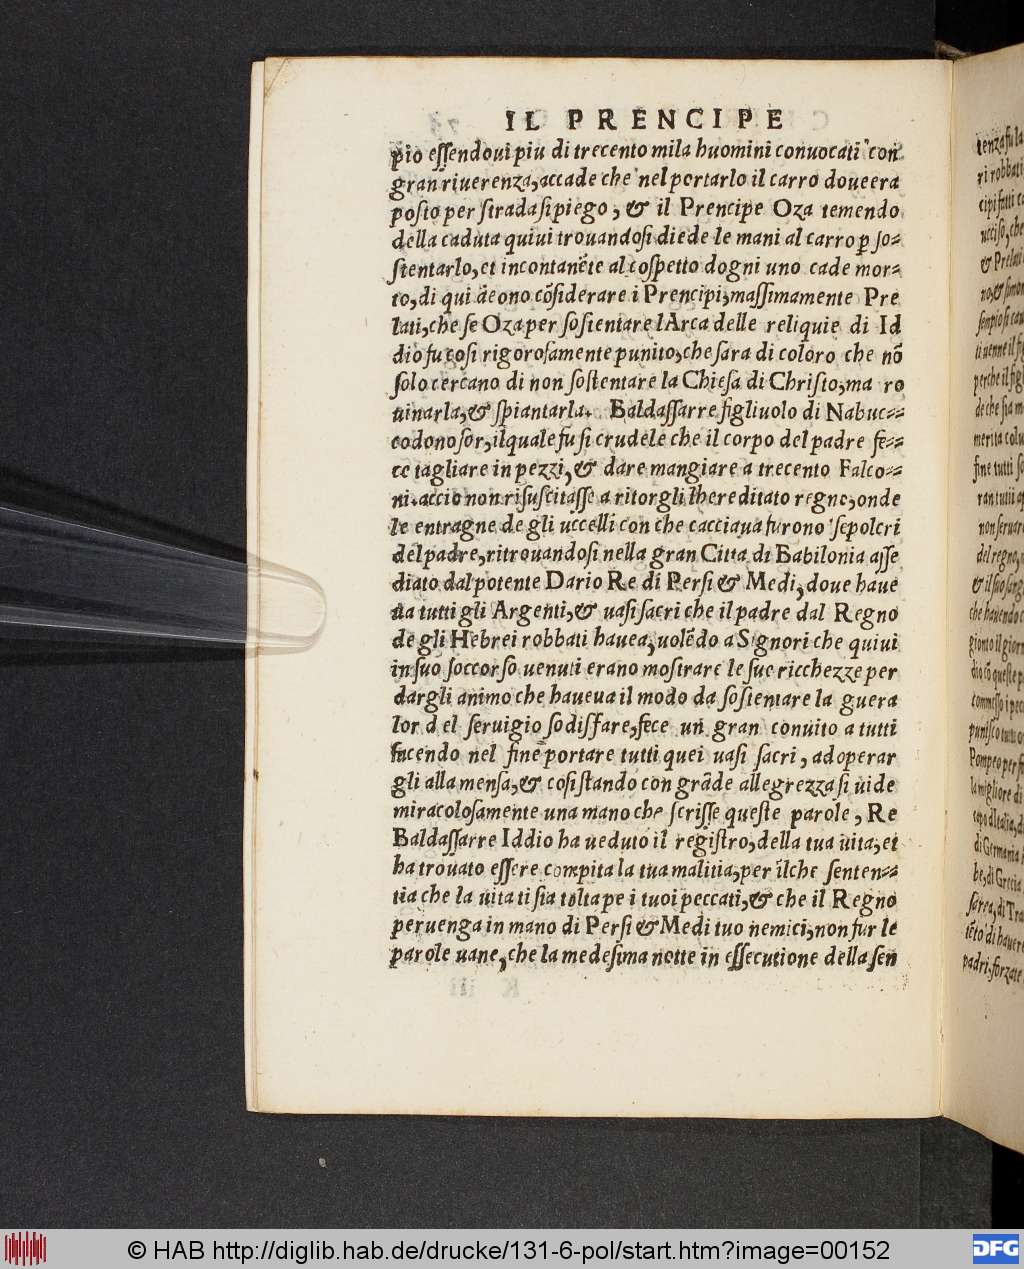 IL PRENCIPE
pio eſſendoui piu di trecento mila huomini conuocati con
gran riuerenza, accade che nel portarlo il carro doue era
poſto per ſtrada ſi piego, & il Prencipe Oza temendo
della caduta quiui trouandoſi diede le mani al carro ꝑ ſo-
ſtentarlo, et incontanẽte al coſpetto dogni uno cade mor-
to, di qui deono cõſiderare i Prencipi, maſſimamente Pre
lati, che ſe Oza per ſoſtentare lArca delle reliquie di Id
dio fu coſi rigoroſamente punito, che ſara di coloro che nõ
ſolo cercano di non ſoſtentare la Chieſa di Chriſto, ma ro
uinarla, & ſpiantarla. Baldaſſarre figliuolo di Nabuc-
codonoſor, ilquale fu ſi crudele che il corpo del padre fe-
ce tagliare in pezzi, & dare mangiare a trecento Falco-
ni. accio non riſuſcitaſſe a ritorgli lhereditato regno, onde
le entragne de gli uccelli con che cacciaua furono ſepolcri
del padre, ritrouandoſi nella gran Citta di Babilonia aſſe
diato dal potente Dario Re di Perſi & Medi, doue haue
ua tutti gli Argenti, & uaſi ſacri che il padre dal Regno
de gli Hebrei robbati hauea, uolẽdo a Signori che quiui
in ſuo ſoccorſo uenuti erano moſtrare le ſue ricchezze per
dargli animo che haueua il modo da ſoſtentare la guera
lor d el ſeruigio ſodisfare, fece un gran conuito a tutti
facendo nel fine portare tutti quei uaſi ſacri, ad operar
gli alla menſa, & coſi ſtando con grãde allegrezza ſi uide
miracoloſamente una mano che ſcriſſe queſte parole, Re
Baldaſſarre Iddio ha ueduto il regiſtro, della tua uita, et
ha trouato eſſere compita la tua malitia, per ilche ſenten-
tia che la uita ti ſia tolta pe i tuoi peccati, & che il Regno
peruenga in mano di Perſi & Medi tuo nemici, non fur le
parole uane, che la medeſima notte in eſſecutione della ſen
tenza fu la
ri robbati
cipi fatti
ucciſo, che
& Prelati
ſempio ſi
perche il figl
de che ſia
merita
fine tutti
non ſeruar
del regno,
che hauendo
gionto il giorn
dio cõ queſte
commeſſo i
puniſco tutto
Pompeo per
la migliore di
capo dItalia, di
di Germania
be, di Grecia
di Tra
di hauere
padri, forzate
© HAB http://diglib.hab.de/drucke/131-6-pol/start.htm?image=00152
DFG